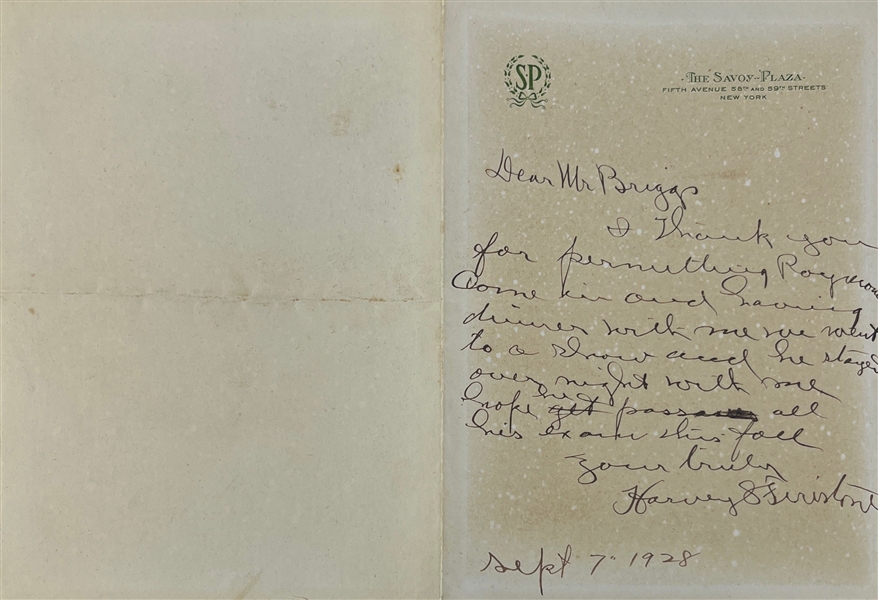 SP
THE SAVOY-PLAZA
FIFTH AVENUE 58TH AND 59TH STREETS
NEW YORK
Dear Mr Briggs
I Thank you
for permitting Raymond
Come in and having
dinner with me we went
to a show and he stayed
over night with me
hope get he pass all
his exam this fall
Your truly
Harvey S Firestone
Sept 7 - 1928